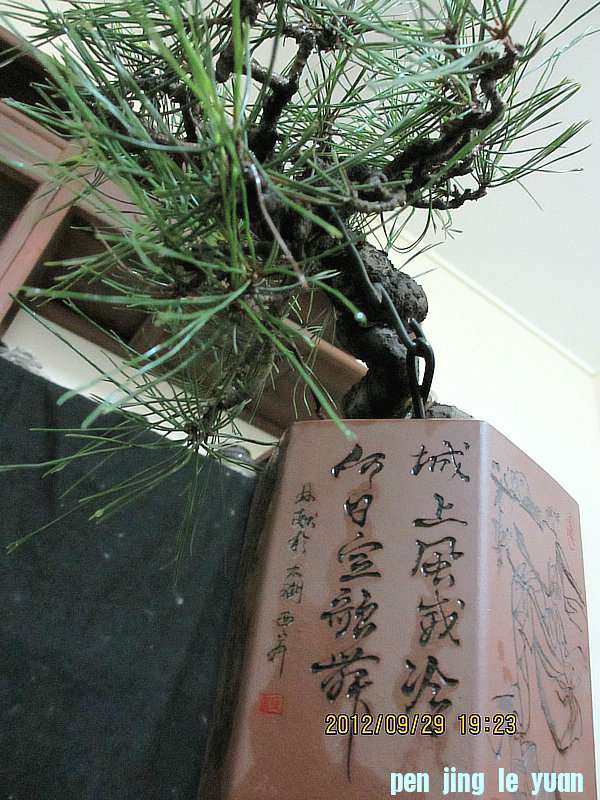 城上風威冷
何日定歌舞
2012/09/29 19:23
pen jing le yuan